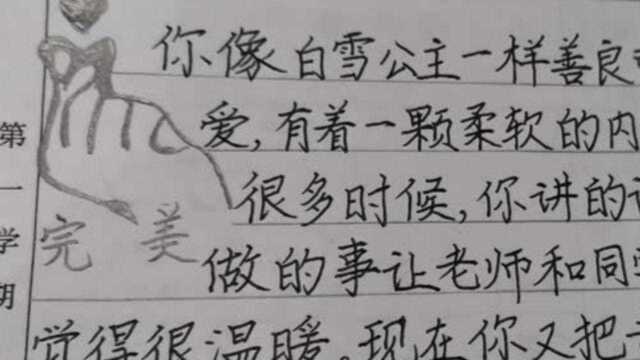 第一学期
你像白雪公主一样善良
爱,有着一颗柔软的内
很多时候,你讲的
完美
做的事让老师和同
觉得很温暖。现在你又把